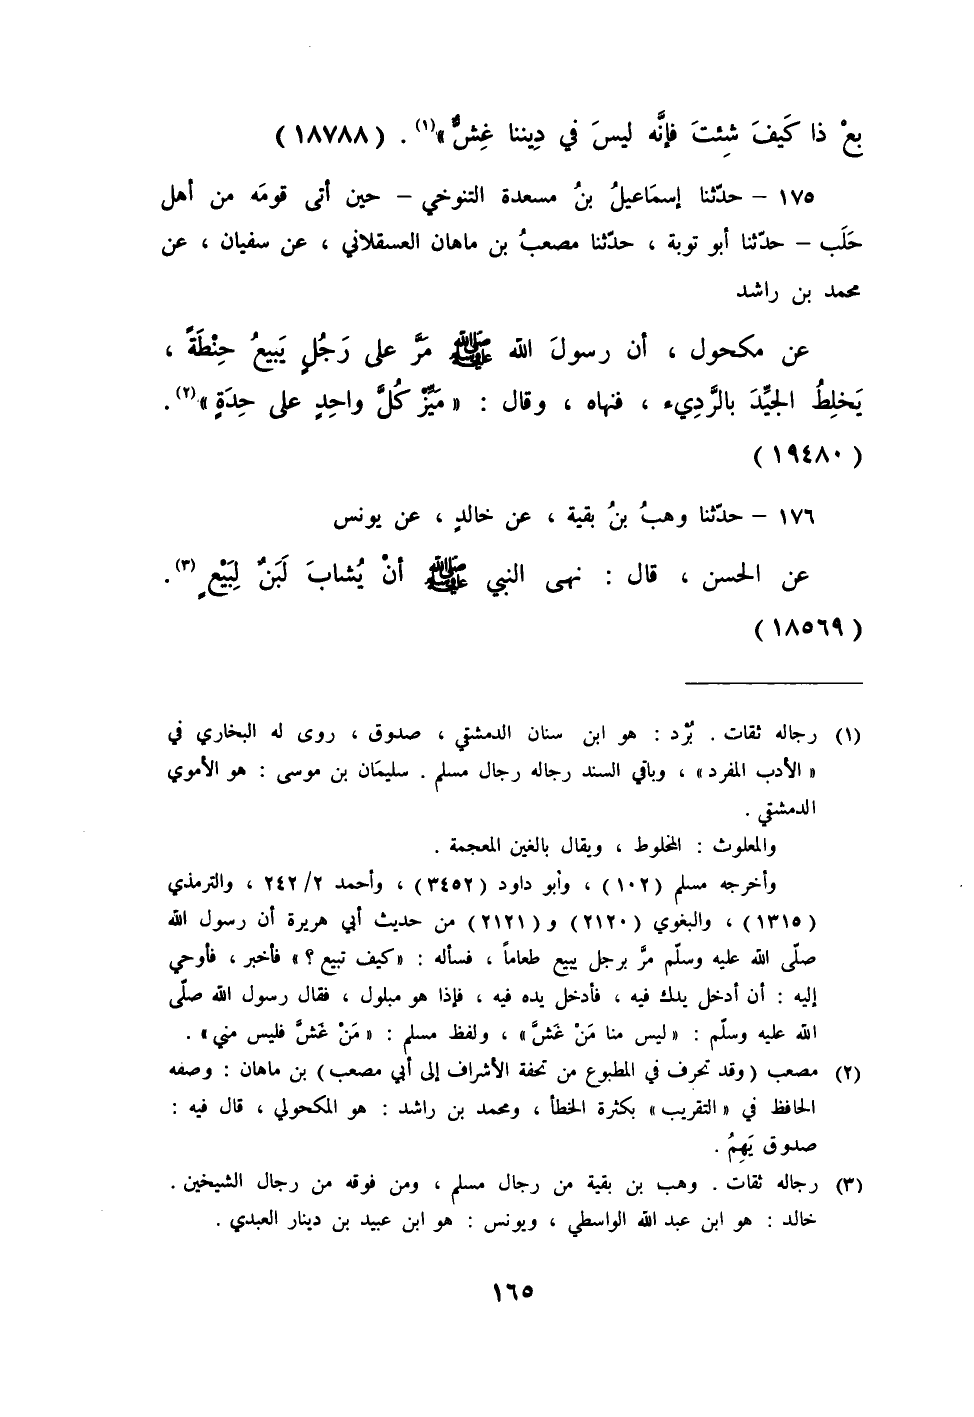 بعْ ذا كَيفَ شِئتَ فإنَّه ليسَ في دِيننا غِشٌّ»(١) . ( ١٨٧٨٨ )
١٧٥ – حدّثنا إسمَاعيلُ بنُ مسعدة التنوخي – حين أتى قومَه من أهل
حَلَب – حدّثنا أبو توبة ، حدّثنا مصعبُ بن ماهان العسقلاني ، عن سفيان ، عن
محمد بن راشد
عن مكحول ، أن رسولَ الله ﷺ مَرَّ على رَجُلٍ يَبيعُ حِنْطَةً ،
يَخلِطُ الجيِّدَ بالرَّدِيء ، فنهاه ، وقال : « مَيِّزْ كُلَّ واحِدٍ على حِدَةٍ »(٢) .
( ١٩٤٨٠ )
١٧٦ – حدّثنا وهبُ بنُ بقية ، عن خالدٍ ، عن يونس
عن الحسن ، قال : نهى النبي ﷺ أنْ يُشابَ لَبَنٌ لِبَيْعٍ (٣) .
( ١٨٥٦٩ )
(١) رجاله ثقات . بُرْد : هو ابن سنان الدمشقي ، صدوق ، روى له البخاري في
« الأدب المفرد » ، وباقي السند رجاله رجال مسلم . سليمَان بن موسى : هو الأموي
الدمشقي .
والمعلوث : المخلوط ، ويقال بالغين المعجمة .
وأخرجه مسلم ( ١٠٢ ) ، وأبو داود ( ٣٤٥٢ ) ، وأحمد ٢/ ٢٤٢ ، والترمذي
( ١٣١٥ ) ، والبغوي ( ٢١٢٠ ) و ( ٢١٢١ ) من حديث أبي هريرة أن رسول الله
صلّى الله عليه وسلّم مرَّ برجل يبيع طعاماً ، فسأله : «كيف تبيع ؟ » فأخبر ، فأوحي
إليه : أن أدخل يدك فيه ، فأدخل يده فيه ، فإذا هو مبلول ، فقال رسول الله صلّى
الله عليه وسلّم : « ليس منا مَنْ غَشَّ » ، ولفظ مسلم : « مَنْ غَشَّ فليس مني » .
(٢) مصعب ( وقد تحرف في المطبوع من تحفة الأشراف إلى أبي مصعب ) بن ماهان : وصفه
الحافظ في « التقريب » بكثرة الخطأ ، ومحمد بن راشد : هو المكحولي ، قال فيه :
صدوق يَهِمُ .
(٣) رجاله ثقات . وهب بن بقية من رجال مسلم ، ومن فوقه من رجال الشيخين .
خالد : هو ابن عبد الله الواسطي ، ويونس : هو ابن عبيد بن دينار العبدي .
١٦٥